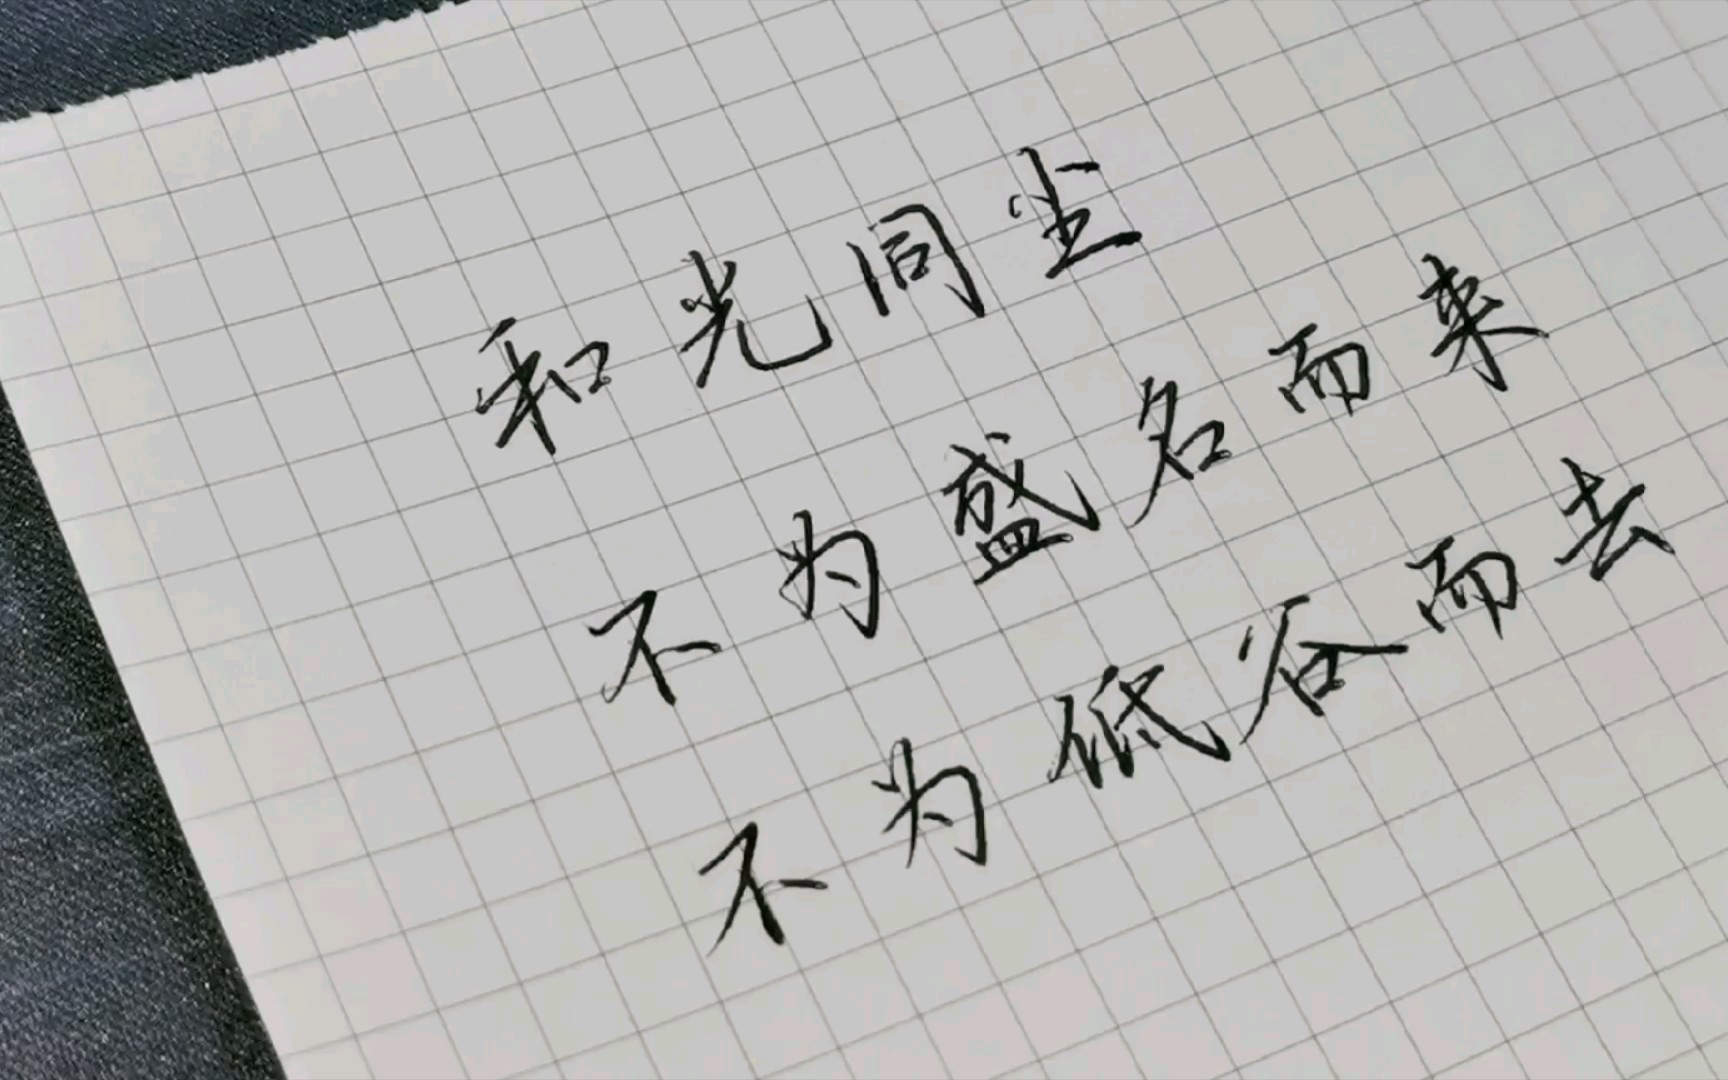 和光同尘
不为盛名而来
不为低谷而去